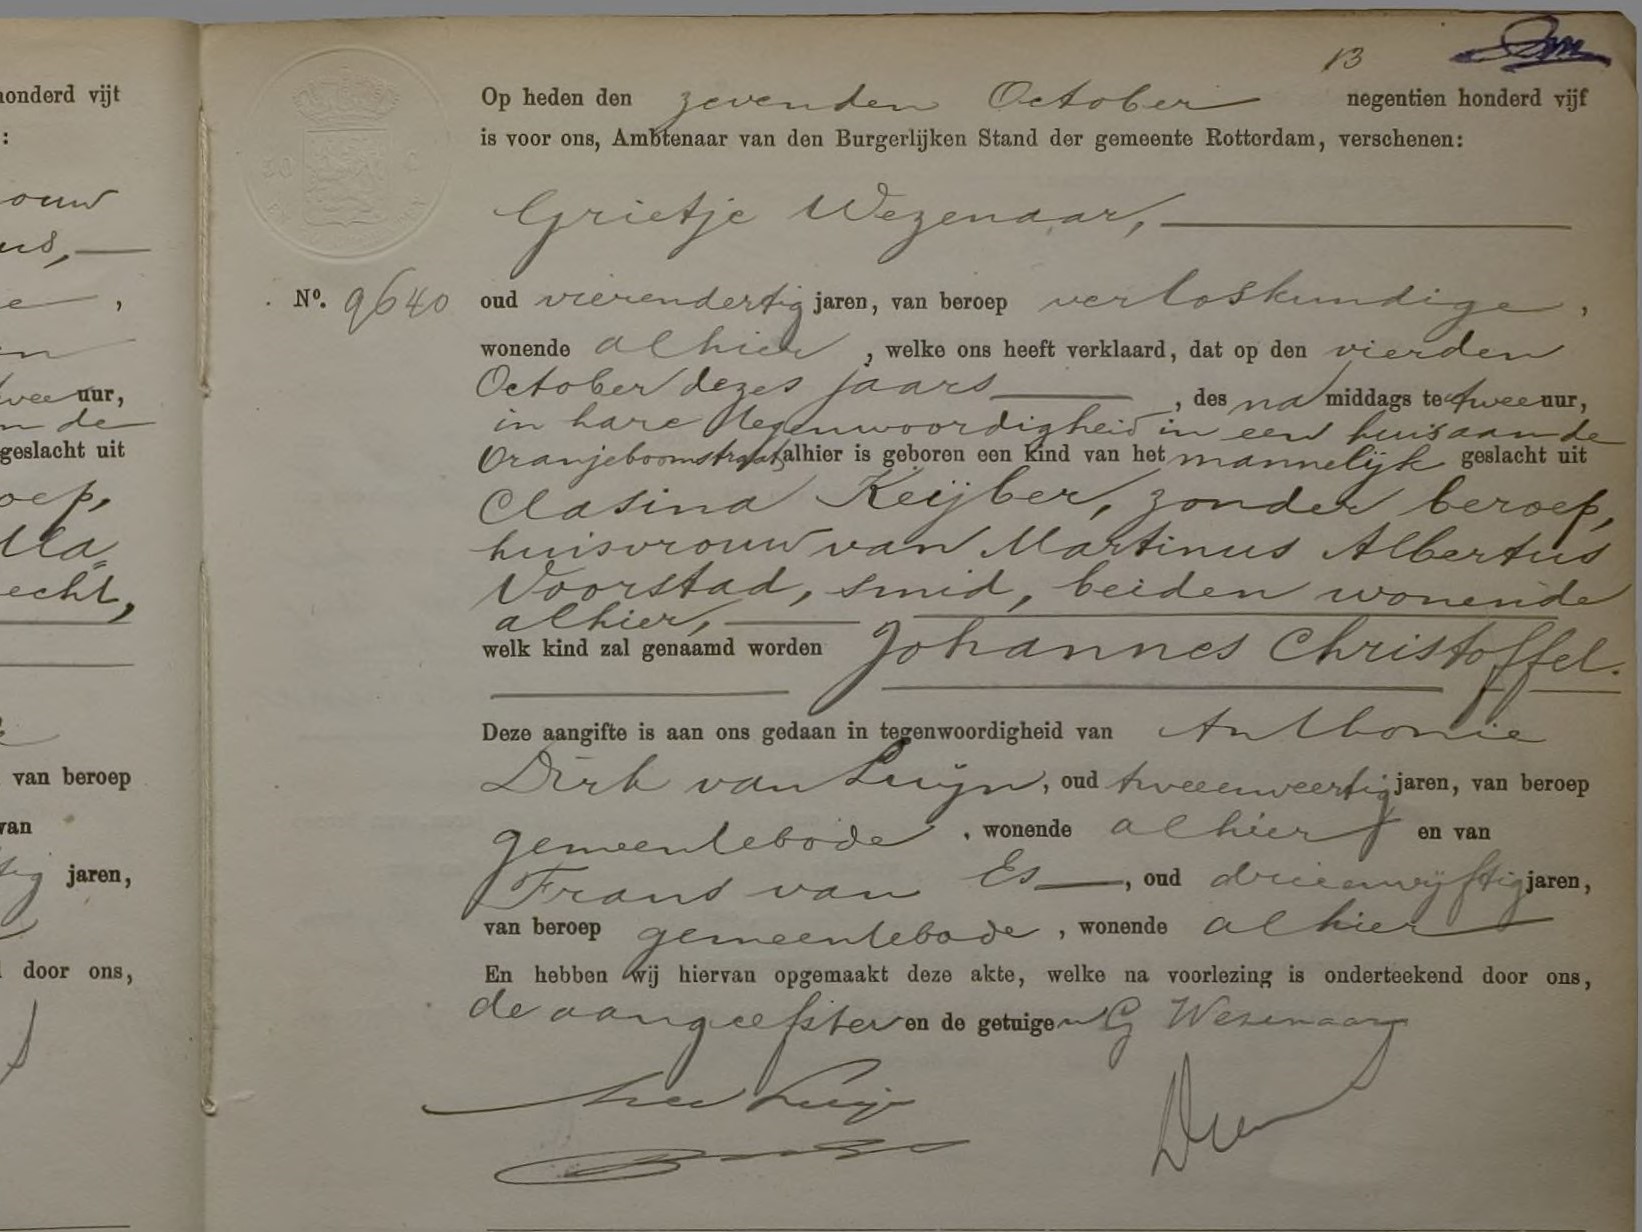 honderd vijf
:
ouw
us,
e,
en
twee uur,
n de
geslacht uit
oep,
Ma=
echt,
van beroep
van
tig jaren,
door ons,
13
Op heden den zevenden October negentien honderd vijf
is voor ons, Ambtenaar van den Burgerlijken Stand der gemeente Rotterdam, verschenen:
Grietje Wezenaar,
No. 9640 oud vierendertig jaren, van beroep verloskundige,
wonende alhier, welke ons heeft verklaard, dat op den vierden
October dezes jaars, des na middags te twee uur,
in hare tegenwoordigheid in een huis aan de
Oranjeboomstraat alhier is geboren een kind van het mannelijk geslacht uit
Clasina Keijber, zonder beroep,
huisvrouw van Martinus Albertus
Voorstad, smid, beiden wonende
alhier,
welk kind zal genaamd worden Johannes Christoffel.
Deze aangifte is aan ons gedaan in tegenwoordigheid van Anthonie
Dirk van Luijn, oud tweeenveertig jaren, van beroep
gemeentebode, wonende alhier en van
Frans van Es, oud drieenvijftig jaren,
van beroep gemeentebode, wonende alhier
En hebben wij hiervan opgemaakt deze akte, welke na voorlezing is onderteekend door ons,
de aangeefster en de getuigen G Wezenaar